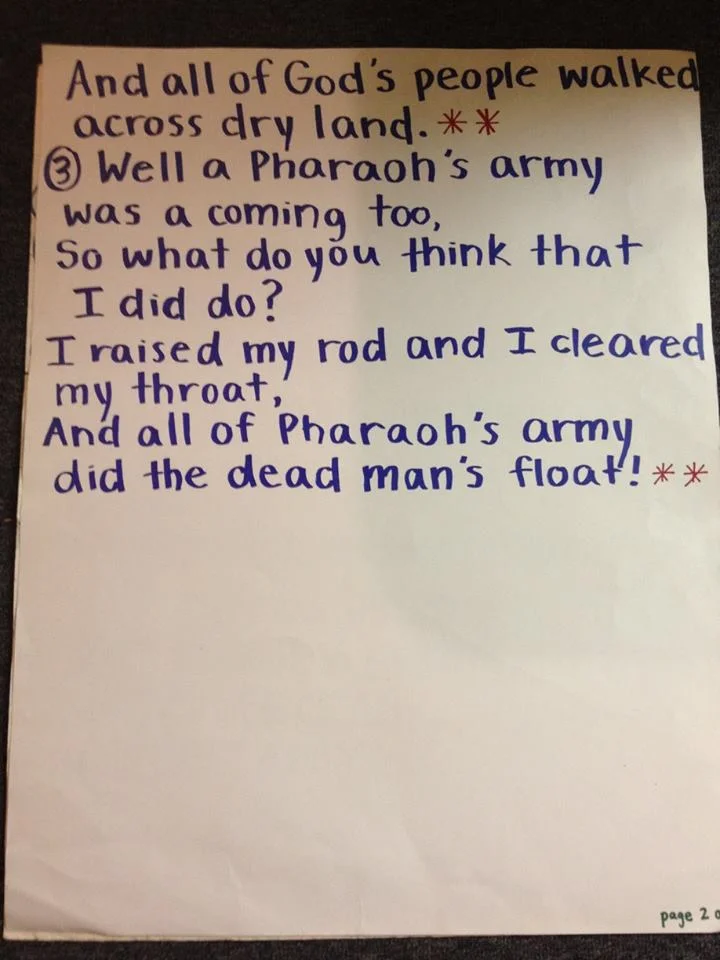 And all of God's people walked
across dry land. **
③ Well a Pharaoh's army
was a coming too,
So what do you think that
I did do?
I raised my rod and I cleared
my throat,
And all of Pharaoh's army
did the dead man's float! **
page 2